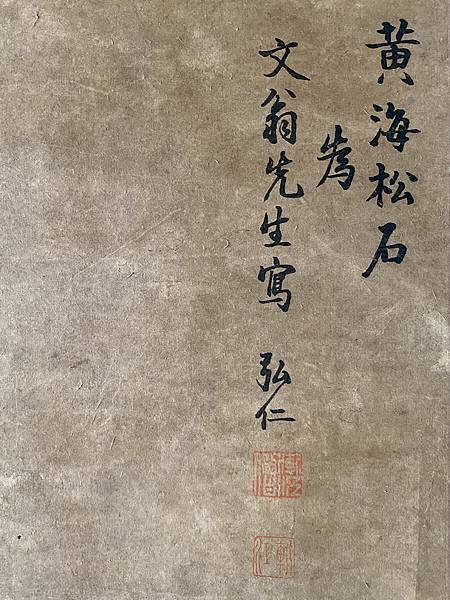 黄海松石
為
文翁先生寫 弘仁